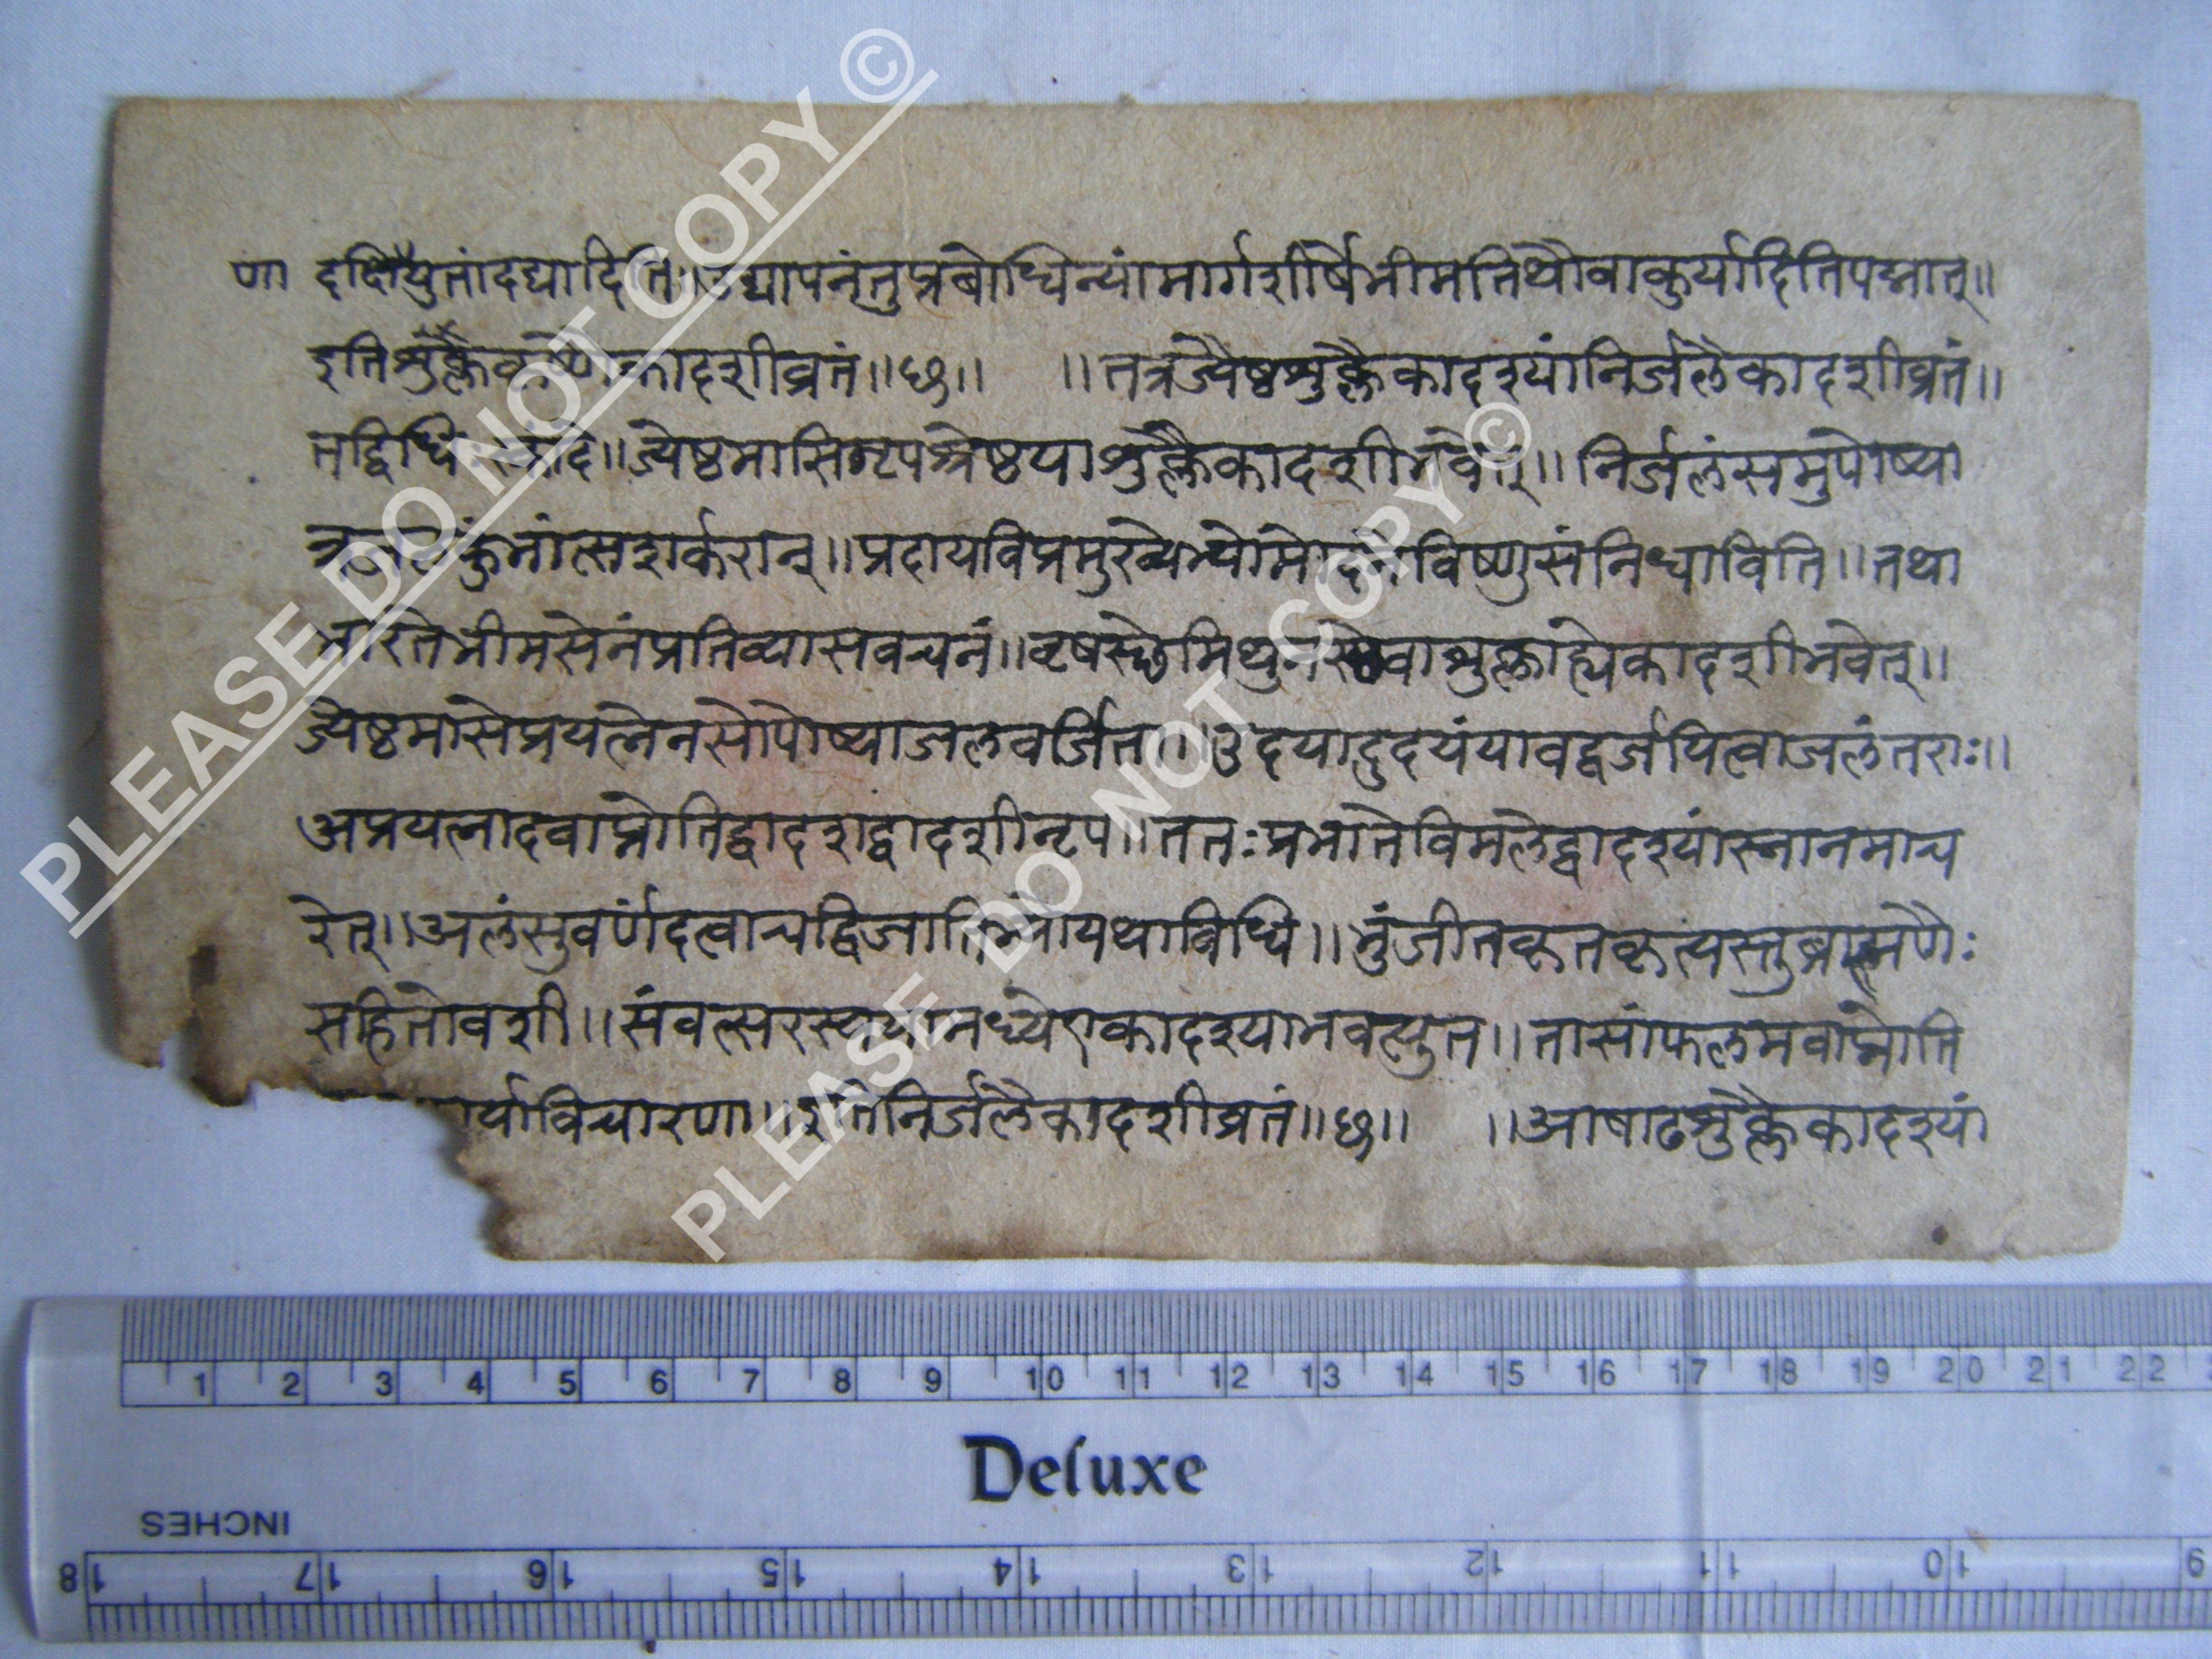 णा दक्षियुतांदद्यादिति॥उद्यापनंतुप्रबोधिन्यांमार्गशीर्षेभीमतिथौवाकुर्यादितिपद्मात्॥
इतिशुक्लैकादशीव्रतं॥छ॥ ॥तत्रज्यैष्ठशुक्लैकादश्यांनिर्जलैकादशीव्रतं॥
तद्विधि ज्येष्ठमासिनृपश्रेष्ठयाशुक्लैकादशीभवेत्॥निर्जलंसमुपोष्या
कुंभांत्सशर्करान्॥प्रदायविप्रमुख्येभ्योमोदतेविष्णुसंनिधाविति॥तथा
भारतेभीमसेनंप्रतिव्यासवचनं॥वृषस्थेमिथुनस्थेवाशुक्लाह्येकादशीभवेत्॥
ज्येष्ठमासेप्रयत्नेनसोपोष्याजलवर्जिता॥उदयादुदयंयावद्वर्जयित्वाजलंनराः॥
अप्रयत्नादवाप्नोतिद्वादशद्वादशीनृप॥ततःप्रभातेविमलेद्वादश्यांस्नानमाच
रेत्॥अलंसुवर्णंदत्वाचद्विजातिभ्योयथाविधि॥भुंजीतकृतकृत्यस्तुब्राह्मणैः
सहितोवशी॥संवत्सरस्ययामध्येएकादश्योभवत्युत॥तासांफलमवाप्नोति
र्याविचारणा॥इतिनिर्जलैकादशीव्रतं॥छ॥ ॥आषाढशुक्लैकादश्यां
PLEASE DO NOT COPY ©
PLEASE DO NOT COPY ©
1 2 3 4 5 6 7 8 9 10 11 12 13 14 15 16 17 18 19 20 21 22
Deluxe
INCHES
18 17 16 15 14 13 12 11 10 9